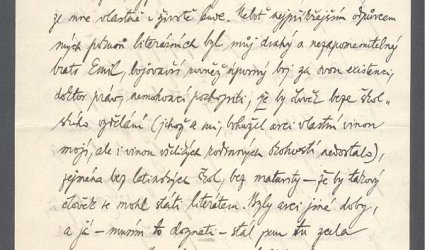 že mne vlastně i živote Luce. Neboť nejpřísnějším odpůrcem
mých plánů literárních byl můj drahý a nezapomenutelný
bratr Emil, bojovavší rovněž úporný boj za svou existenci,
doktor práv, nemohoucí pochopiti, že by člověk beze škol-
ského vzdělání (jehož se mi, bohužel arci vlastní vinou
mojí, ale i vinou zvláštních rodinných okolností nedostalo),
zejména bez latinských škol, bez maturity – že by takový
člověk se mohl státi literátem. Byly arci jiné doby,
a já – musím to doznati – stál jsem tu zcela